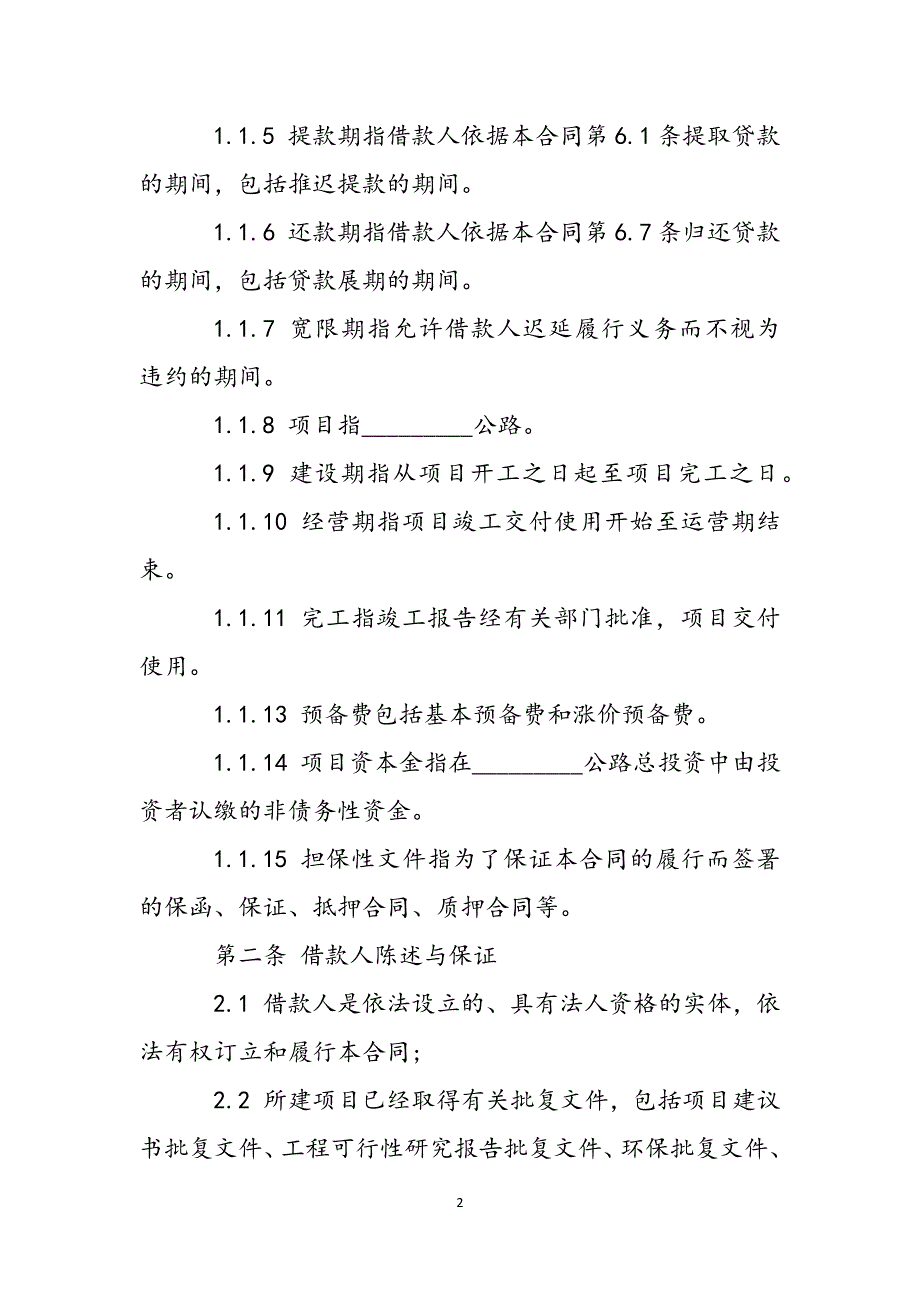 1.1.5 提款期指借款人依据本合同第6.1条提取贷款
的期间，包括推迟提款的期间。
1.1.6 还款期指借款人依据本合同第6.7条归还贷款
的期间，包括贷款展期的期间。
1.1.7 宽限期指允许借款人迟延履行义务而不视为
违约的期间。
1.1.8 项目指_________公路。
1.1.9 建设期指从项目开工之日起至项目完工之日。
1.1.10 经营期指项目竣工交付使用开始至运营期结
束。
1.1.11 完工指竣工报告经有关部门批准，项目交付
使用。
1.1.13 预备费包括基本预备费和涨价预备费。
1.1.14 项目资本金指在_________公路总投资中由投
资者认缴的非债务性资金。
1.1.15 担保性文件指为了保证本合同的履行而签署
的保函、保证、抵押合同、质押合同等。
第二条 借款人陈述与保证
2.1 借款人是依法设立的、具有法人资格的实体，依
法有权订立和履行本合同；
2.2 所建项目已经取得有关批复文件，包括项目建议
书批复文件、工程可行性研究报告批复文件、环保批复文件、
2